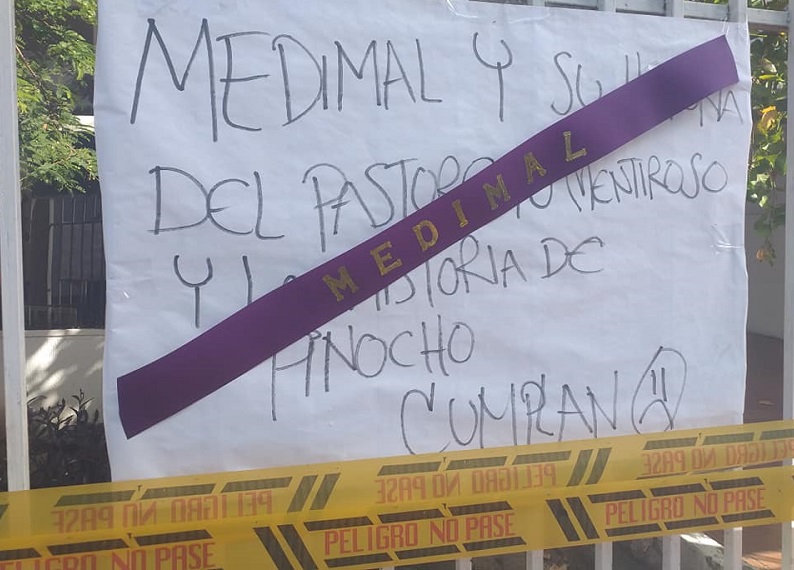 MEDIMAL Y SU
DEL MENTIROSO
Y DE
PINOCHO
CUMPLAN
MEDIMAL
PELIGRO NO PASE
PELIGRO NO PASE
PELIGRO NO PASE
PELIGRO NO PASE
PELIGRO NO PASE
PELIGRO NO PASE